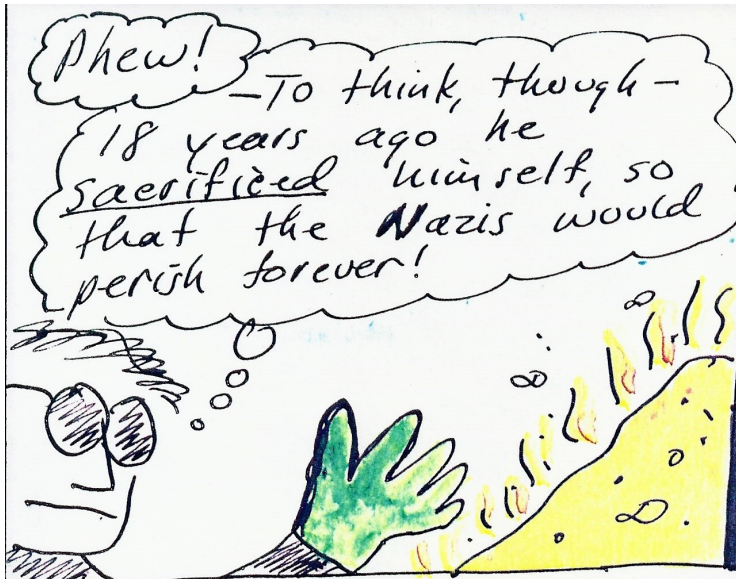 Phew!
—To think, though—
18 years ago he
sacrificed himself, so
that the Nazis would
perish forever!